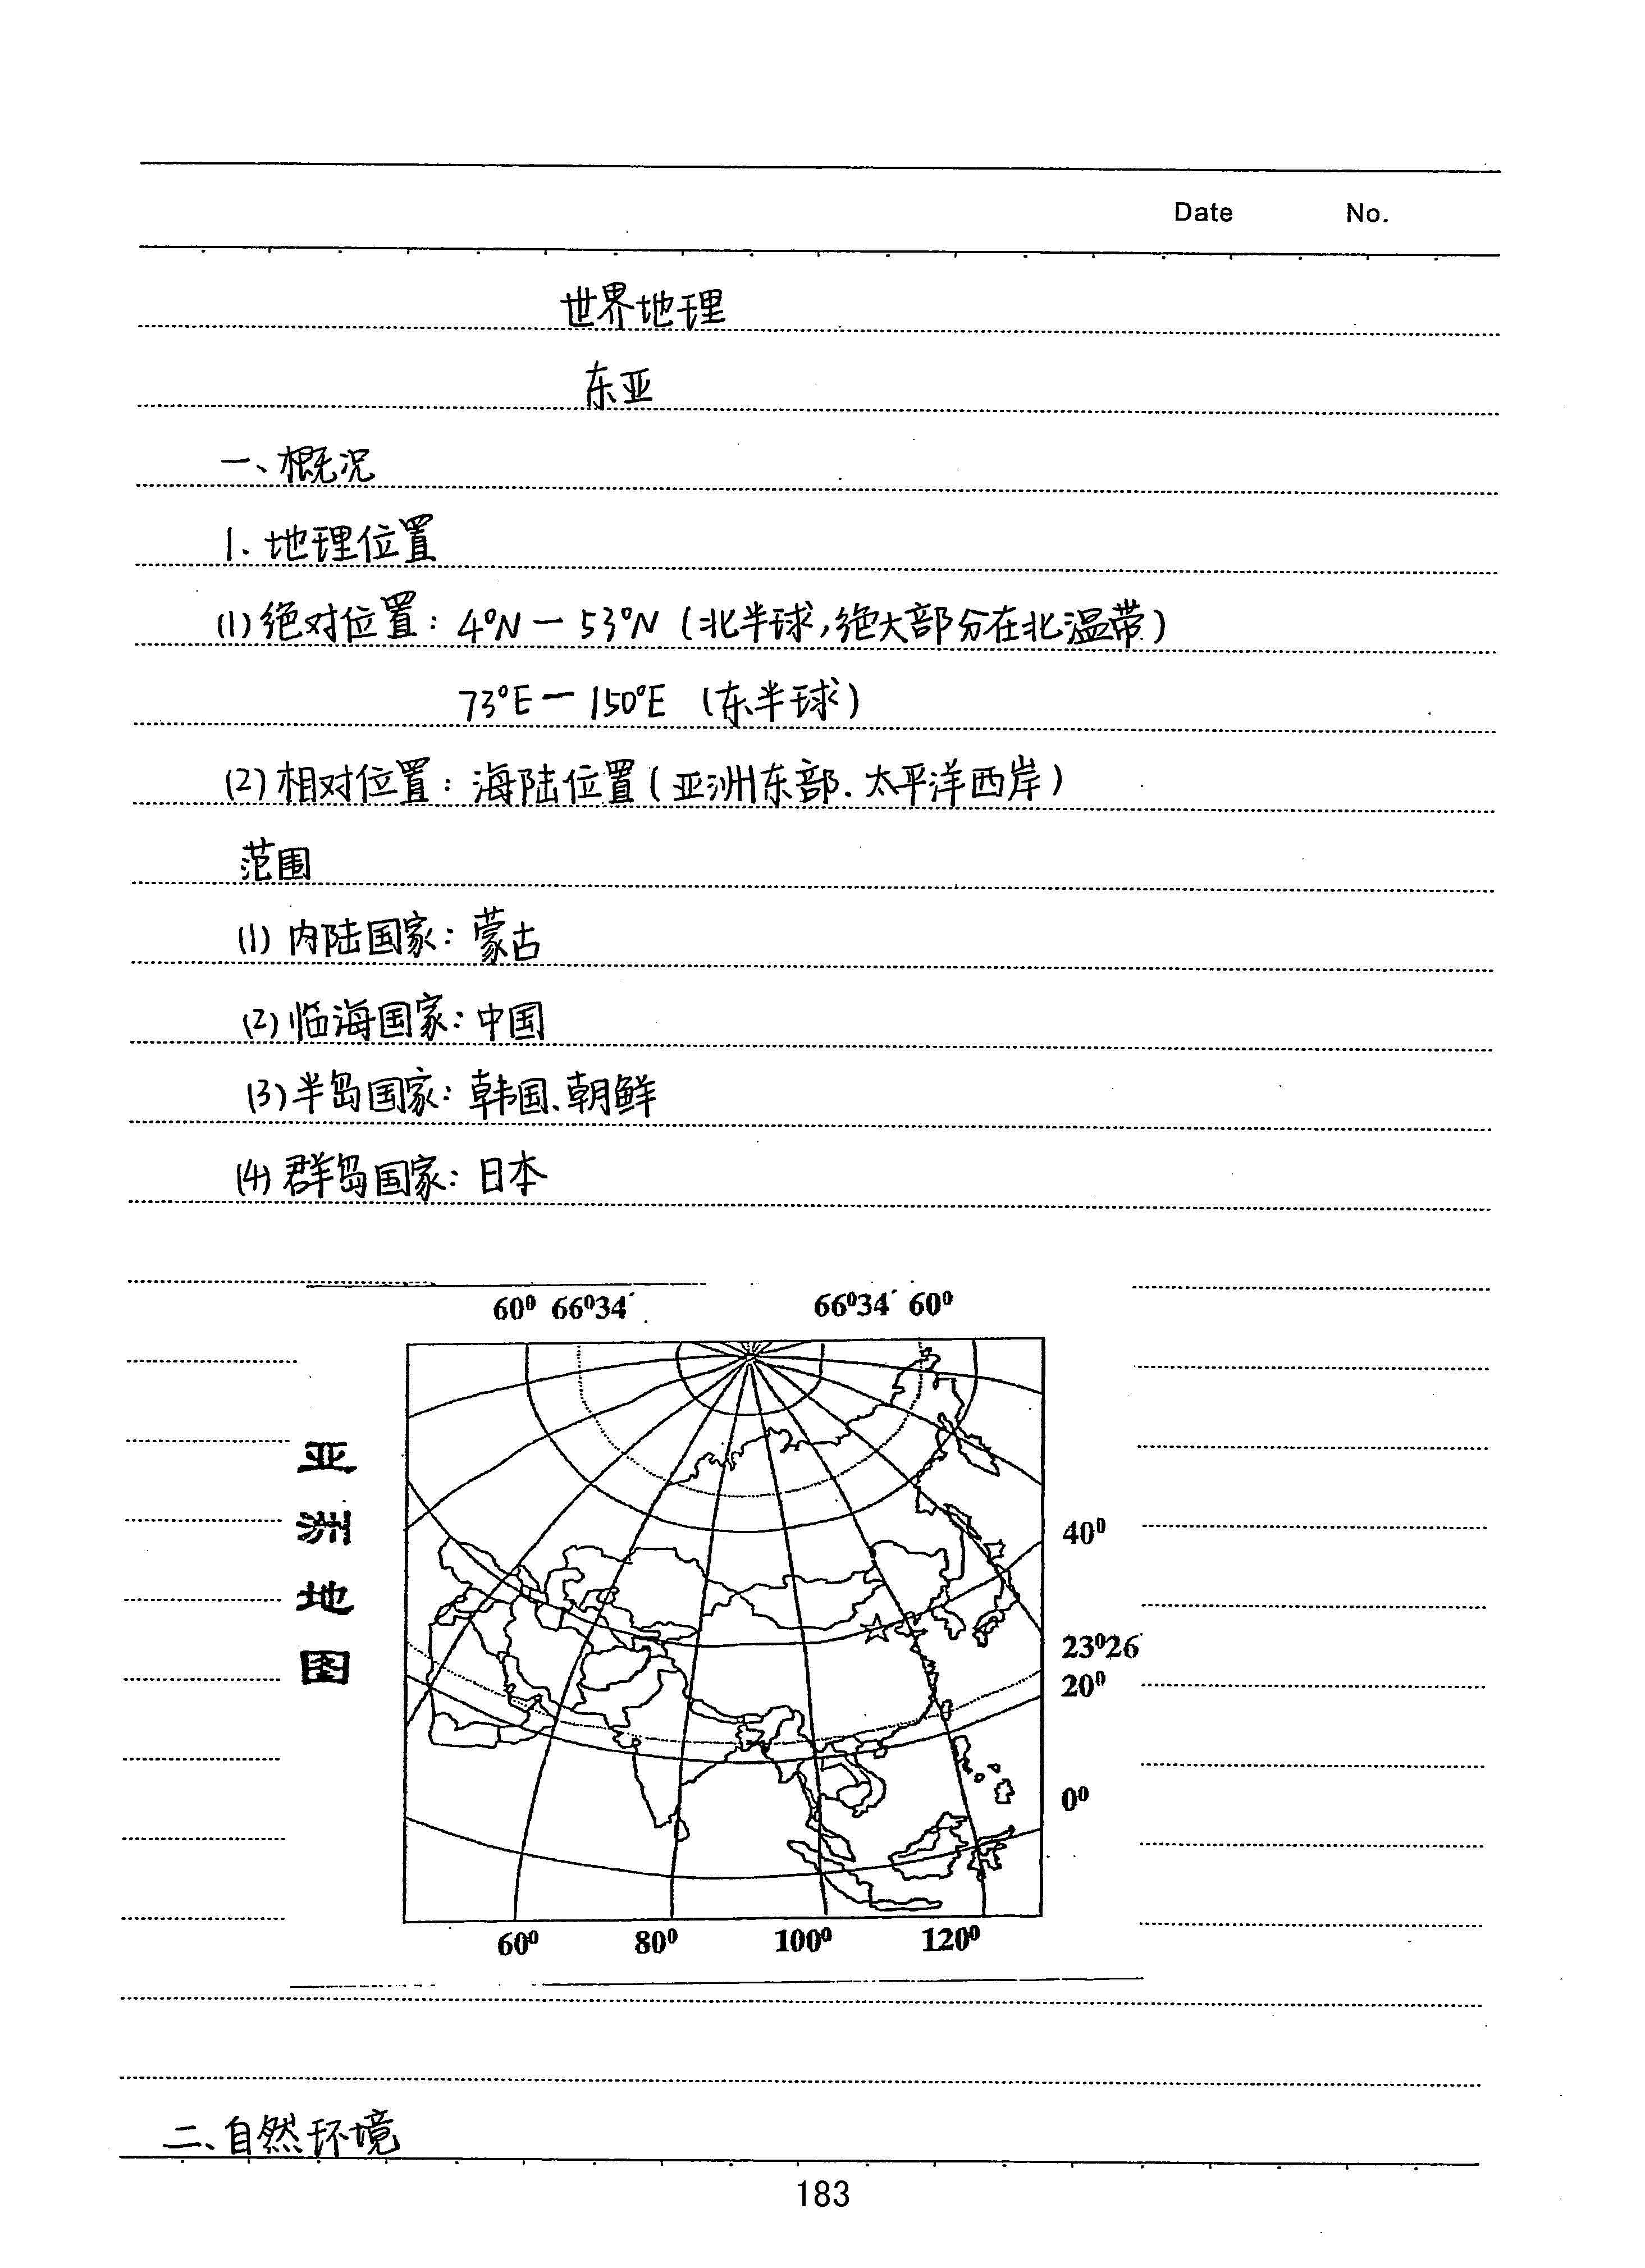 Date No.
世界地理
东亚
一、概况
1. 地理位置
(1) 绝对位置：4°N — 53°N（北半球，绝大部分在北温带）
73°E — 150°E （东半球）
(2) 相对位置：海陆位置（亚洲东部．太平洋西岸）
范围
(1) 内陆国家：蒙古
(2) 临海国家：中国
(3) 半岛国家：韩国、朝鲜
(4) 群岛国家：日本
60⁰ 66⁰34′ 66⁰34′ 60⁰
亚洲地图
40⁰
23⁰26′
20⁰
0⁰
60⁰ 80⁰ 100⁰ 120⁰
二、自然环境
183